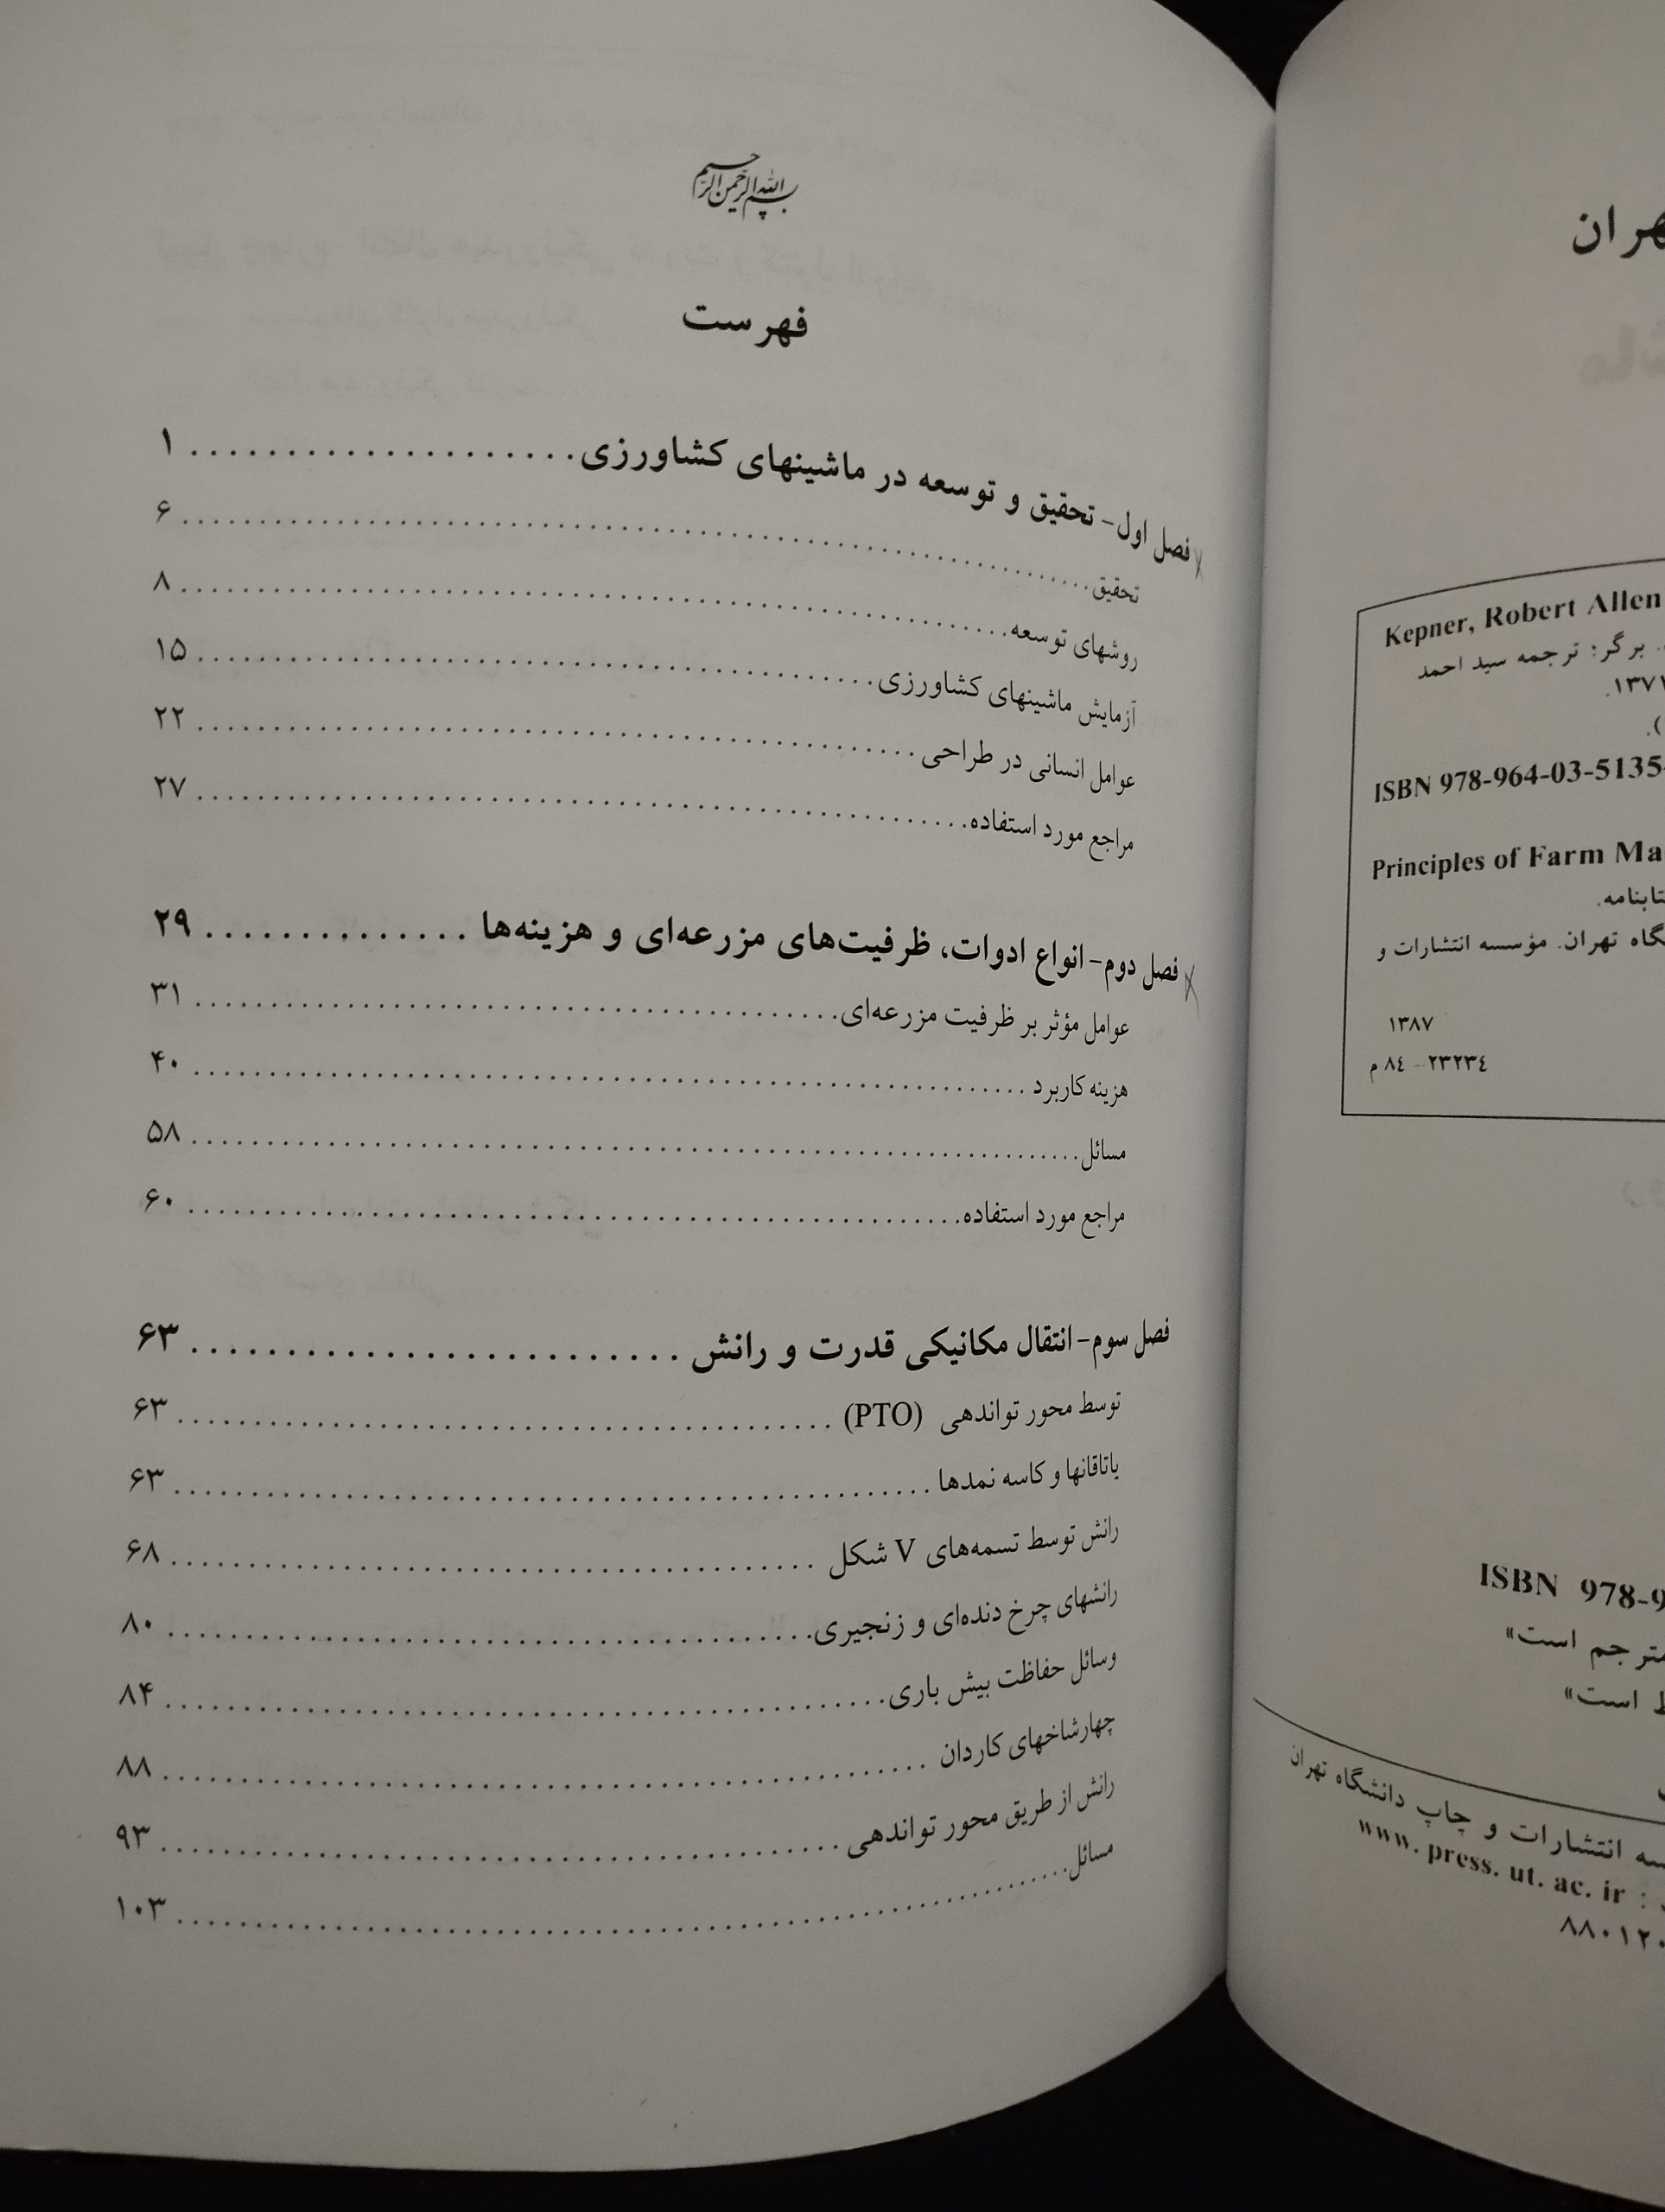 بسم الله الرحمن الرحیم
فهرست
فصل اول- تحقیق و توسعه در ماشینهای کشاورزی .................... ۱
تحقیق .................... ۶
روشهای توسعه .................... ۸
آزمایش ماشینهای کشاورزی .................... ۱۵
عوامل انسانی در طراحی .................... ۲۲
مراجع مورد استفاده .................... ۲۷
فصل دوم- انواع ادوات، ظرفیت‌های مزرعه‌ای و هزینه‌ها .............. ۲۹
عوامل مؤثر بر ظرفیت مزرعه‌ای .................... ۳۱
هزینه کاربرد .................... ۴۰
مسائل .................... ۵۸
مراجع مورد استفاده .................... ۶۰
فصل سوم- انتقال مکانیکی قدرت و رانش .................... ۶۳
توسط محور تواندهی (PTO) .................... ۶۳
یاتاقانها و کاسه نمدها .................... ۶۳
رانش توسط تسمه‌های V شکل .................... ۶۸
رانشهای چرخ دنده‌ای و زنجیری .................... ۸۰
وسائل حفاظت بیش باری .................... ۸۴
چهارشاخهای کاردان .................... ۸۸
رانش از طریق محور تواندهی .................... ۹۳
مسائل .................... ۱۰۳
Kepner, Robert Allen
برگر؛ ترجمه سید احمد
۱۳۷۱.
ISBN 978-964-03-5135-
Principles of Farm Ma
تهران. مؤسسه انتشارات و
۱۳۸۷
۲۳۲۳٤ - ۸٤ م
ISBN 978-9
است»
است»
انتشارات و چاپ دانشگاه تهران
: www. press. ut. ac. ir
۸۸۰۱۲۰